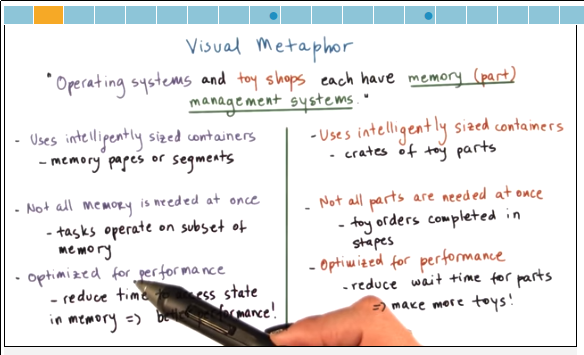 Visual Metaphor
"Operating systems and toy shops each have memory (part)
management systems."
- Uses intelligently sized containers
- memory pages or segments
- Not all memory is needed at once
- tasks operate on subset of
memory
- Optimized for performance
- reduce time state
in memory => performance!
- Uses intelligently sized containers
- crates of toy parts
- Not all parts are needed at once
- toy orders completed in
stages
- Optimized for performance
- reduce wait time for parts
=> make more toys!